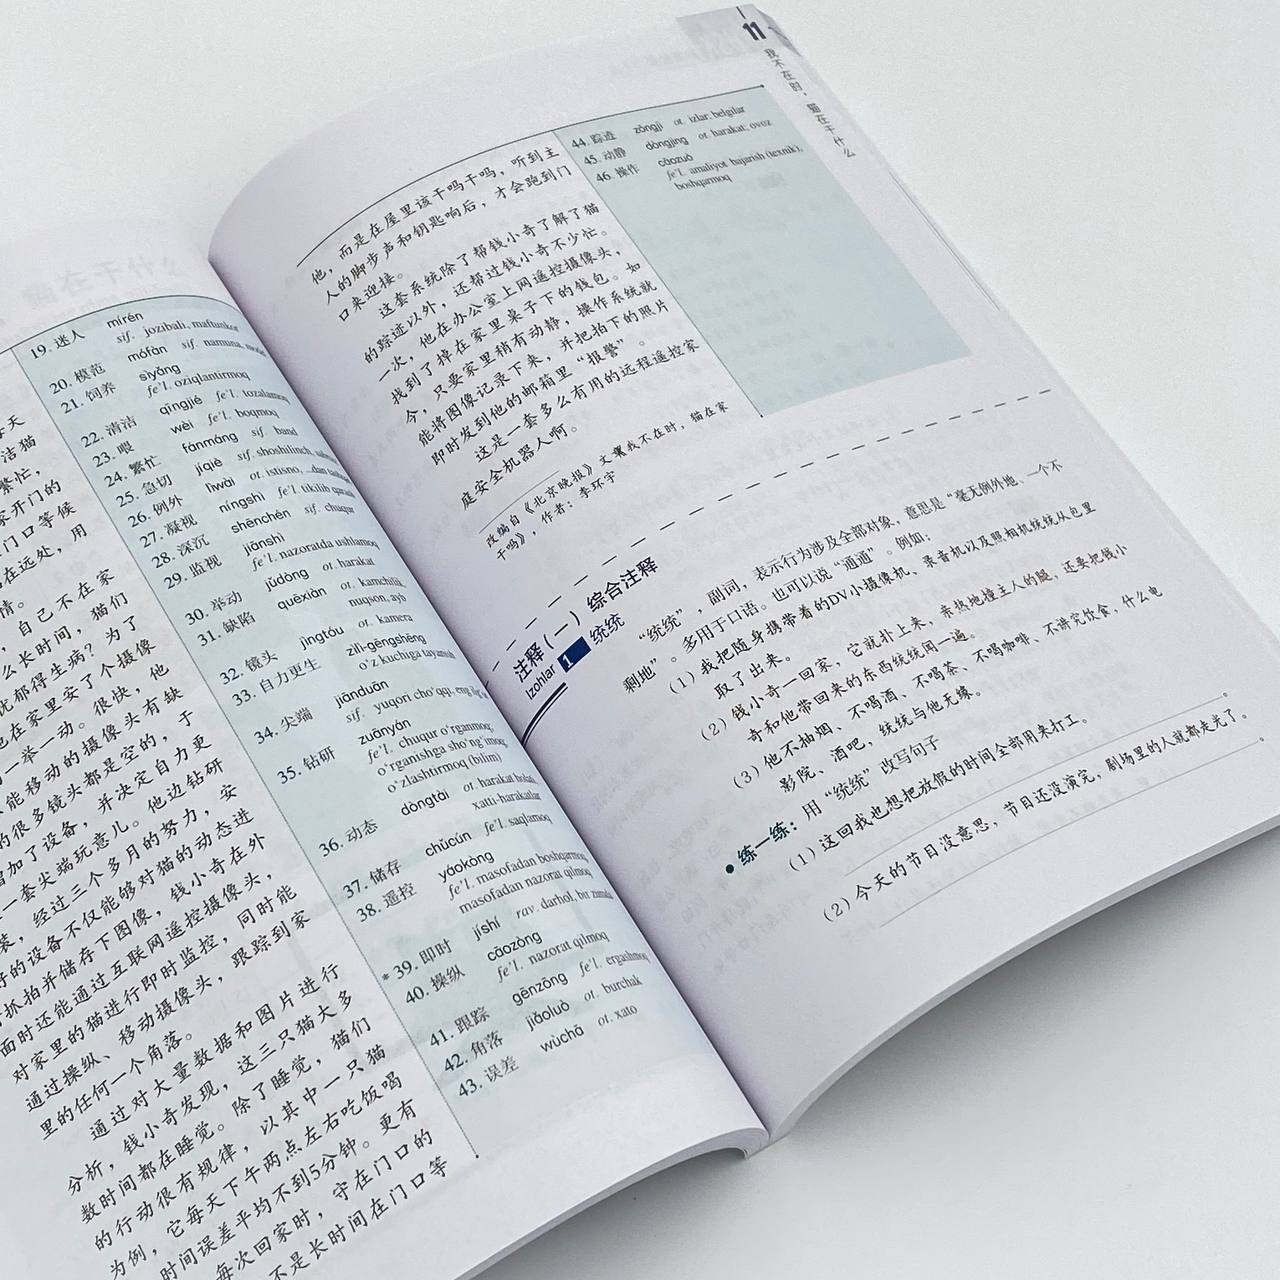 每天
洁猫
繁忙，
家开门的
门口等候
站在远处，用
情。
自己不在家
么长时间，猫们
忧都得生病？为了
他在家里安了个摄像
的一举一动。很快，他
不能移动的摄像头有缺
的很多镜头都是空的，于
增加了设备，并决定自力更
一套尖端玩意儿。他边钻研
装，经过三个多月的努力，安
好的设备不仅能够对猫的动态进
抓拍并储存下图像，钱小奇在外
面时还能通过互联网遥控摄像头，
对家里的猫进行即时监控，同时能
通过操纵、移动摄像头，跟踪到家
里的任何一个角落。
通过对大量数据和图片进行
分析，钱小奇发现，这三只猫大多
数时间都在睡觉。除了睡觉，猫们
的行动很有规律，以其中一只猫
为例，它每天下午两点左右吃饭喝
时间误差平均不到5分钟。更有
每次回家时，守在门口的
不是长时间在门口等
19. 迷人 mírén
sif. jozibali, maftunkor
20. 模范 mófàn sif. namuna, model
21. 饲养 sìyǎng
fe'l. oziqlantirmoq
22. 清洁 qīngjié fe'l. tozalamoq
23. 喂 wèi fe'l. boqmoq
24. 繁忙 fánmáng sif. band
25. 急切 jíqiè sif. shoshilinch,
26. 例外 lìwài ot. istisno, ...dan
27. 凝视 níngshì fe'l. tikilib qaramoq
28. 深沉 shēnchén sif. chuqur
29. 监视 jiānshì
fe'l. nazoratda ushlamoq
30. 举动 jǔdòng ot. harakat
31. 缺陷 quēxiàn ot. kamchilik,
nuqson, ayb
32. 镜头 jìngtóu ot. kamera
33. 自力更生 zìlì-gēngshēng
o'z kuchiga tayanish
34. 尖端 jiānduān
sif. yuqori cho'qqi, eng
35. 钻研 zuānyán
fe'l. chuqur o'rganmoq,
o'rganishga sho'ng'imoq,
o'zlashtirmoq (bilim)
36. 动态 dòngtài ot. harakat holati,
xatti-harakatlar
37. 储存 chǔcún fe'l. saqlamoq
38. 遥控 yáokòng
fe'l. masofadan boshqarmoq,
masofadan nazorat qilmoq
* 39. 即时 jíshí rav. darhol, bir zumda
40. 操纵 cāozòng
fe'l. nazorat qilmoq
41. 跟踪 gēnzōng fe'l. ergashmoq
42. 角落 jiǎoluò ot. burchak
43. 误差 wùchā ot. xato
11
我不在时，猫在干什么
他，而是在屋里该干吗干吗，听到主
人的脚步声和钥匙响后，才会跑到门
口来迎接。
这套系统除了帮钱小奇了解了猫
的踪迹以外，还帮过钱小奇不少忙。
一次，他在办公室上网遥控摄像头，
找到了掉在家里桌子下的钱包。如
今，只要家里稍有动静，操作系统就
能将图像记录下来，并把拍下的照片
即时发到他的邮箱里“报警”。
这是一套多么有用的远程遥控家
庭安全机器人啊。
改编自《北京晚报》文章《我不在时，猫在家
干吗》，作者：李环宇
44. 踪迹 zōngjì ot. izlar, belgilar
45. 动静 dòngjing ot. harakat; ovoz
46. 操作 cāozuò
fe'l. amaliyot bajarish (texnik),
boshqarmoq
注释（一）综合注释
Izohlar
1 统统
“统统”，副词，表示行为涉及全部对象，意思是“毫无例外地、一个不
剩地”。多用于口语。也可以说“通通”。例如：
（1）我把随身携带着的DV小摄像机、录音机以及照相机统统从包里
取了出来。
（2）钱小奇一回家，它就扑上来，亲热地撞主人的腿，还要把钱小
奇和他带回来的东西统统闻一遍。
（3）他不抽烟、不喝酒、不喝茶、不喝咖啡、不讲究饮食，什么电
影院、酒吧，统统与他无缘。
● 练一练：用“统统”改写句子
（1）这回我也想把放假的时间全部用来打工。
。
（2）今天的节目没意思，节目还没演完，剧场里的人就都走光了。
。